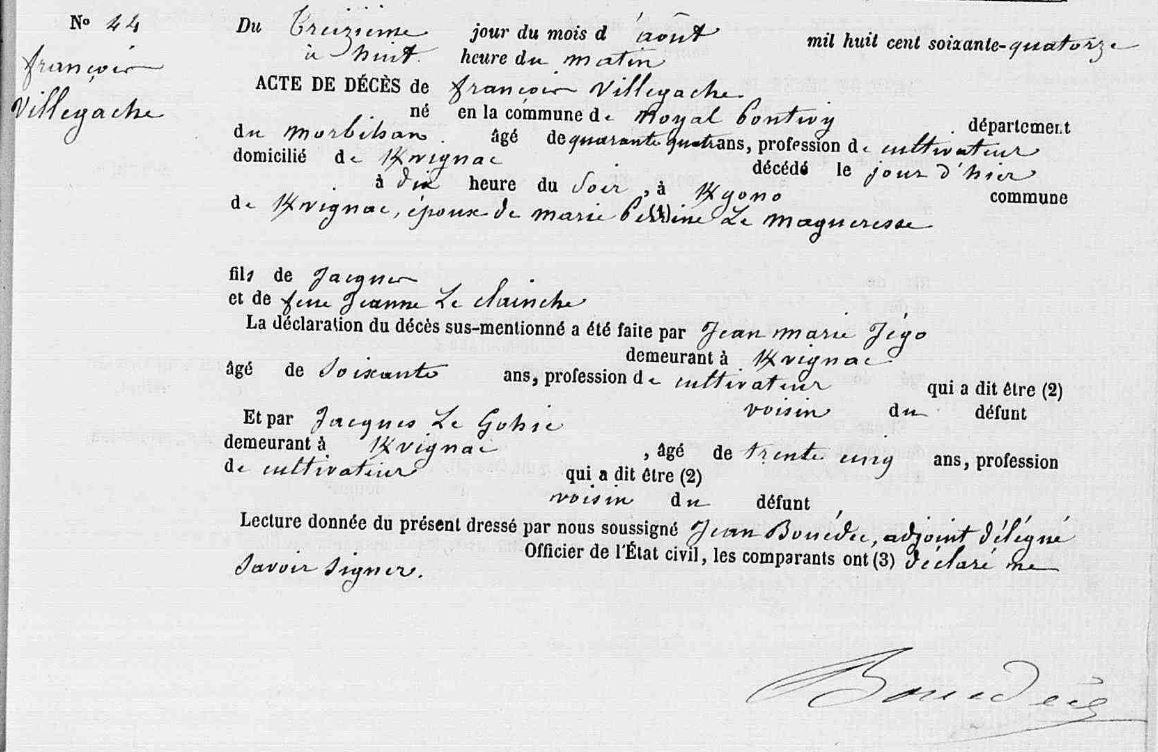 No 44
françois
Villegache
Du Treizième jour du mois d'août mil huit cent soixante-quatorze
à huit heure du matin
ACTE DE DÉCÈS de françois Villegache
né en la commune de Moyal Pontivy département
du morbihan âgé de quarante quatre ans, profession de cultivateur
domicilié de Kvignac décédé le jour d'hier
à dix heure du soir, à Kgono commune
de Kvignac, époux de marie Perrine Le Magueresse
fils de Jacques
et de feue Jeanne Le clainche
La déclaration du décès sus-mentionné a été faite par Jean marie Jégo
demeurant à Kvignac
âgé de soixante ans, profession de cultivateur qui a dit être (2)
voisin du défunt
Et par Jacques Le Gohic
demeurant à Kvignac, âgé de trente cinq ans, profession
de cultivateur qui a dit être (2)
voisin du défunt
Lecture donnée du présent dressé par nous soussigné Jean Bouédec, adjoint délégué
Officier de l'État civil, les comparants ont (3) déclaré ne
savoir signer.
Bouédec